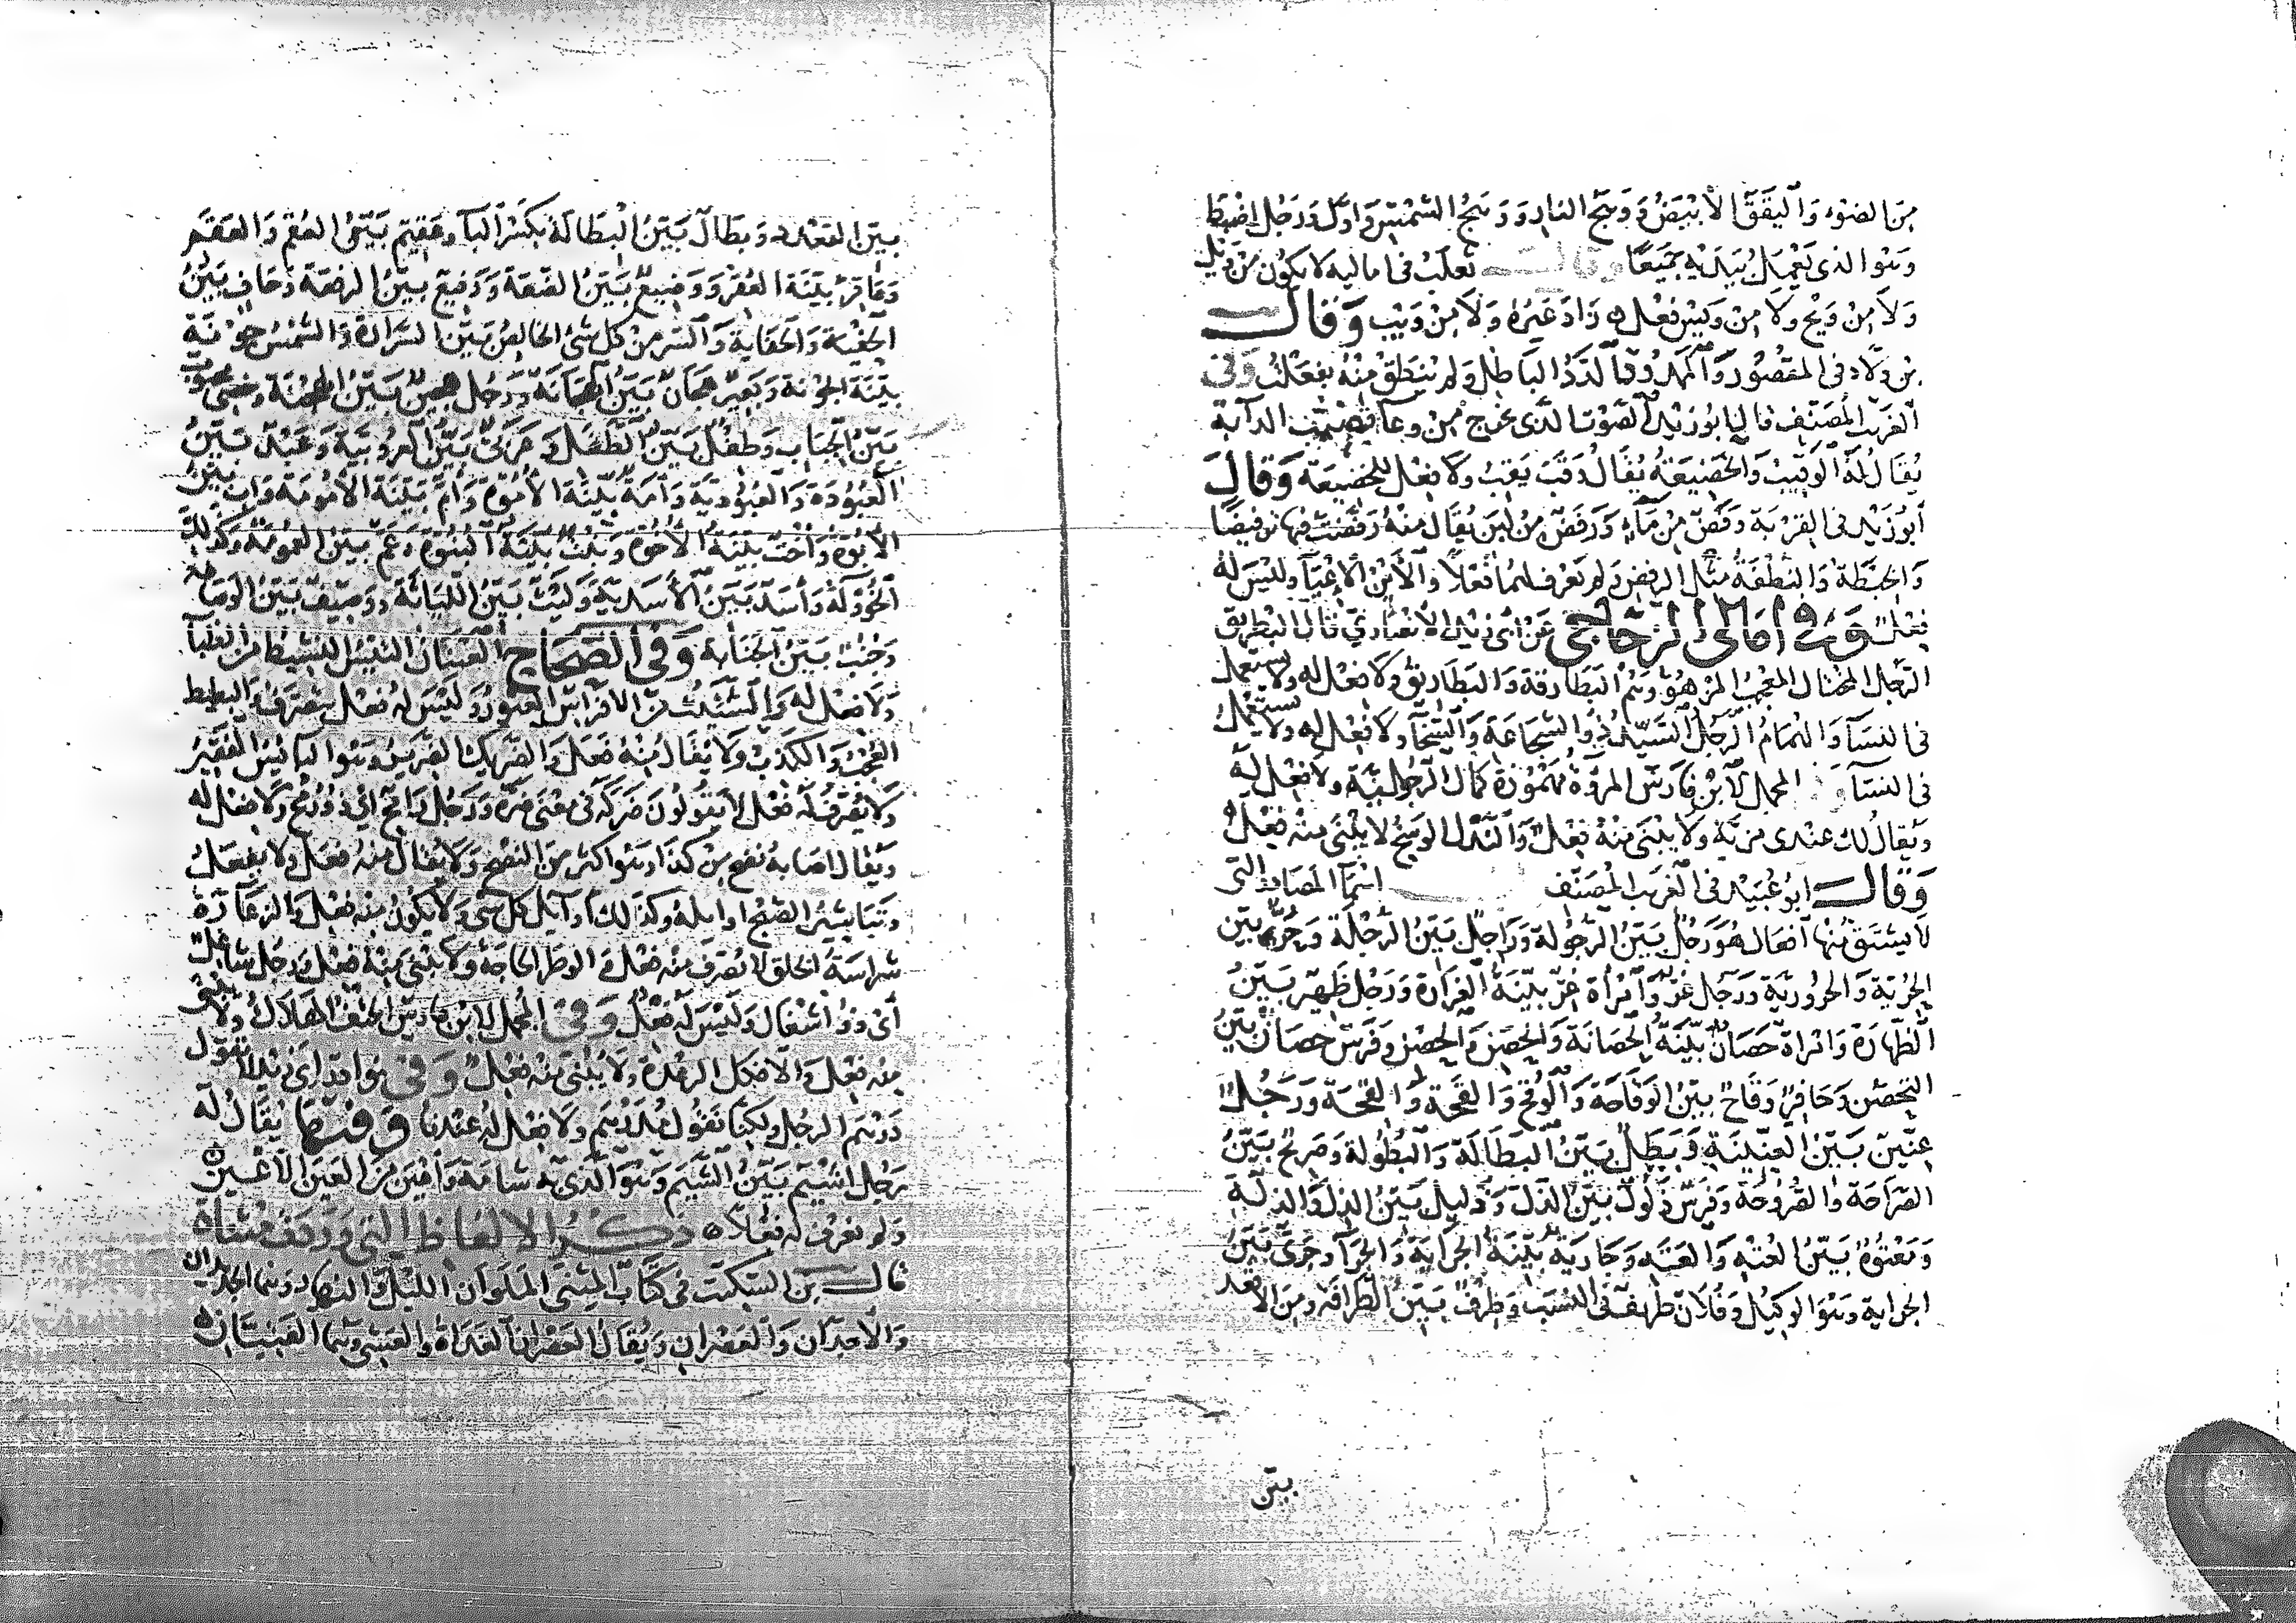 من الضوء واليقق الأبيض ووهج النار ووهج الشمس واول ورجل اضبط
وهو الذى يعمل بيديه جميعا وقال ثعلب فى اماليه لا يكون من ويل
ولا من ويح ولا من ويس فعل زاد غيره ولا من ويب وقال
بن ولاد فى المقصور والممدود الددا الباطل ولم ينطق منه بفعلت وفى
الغريب المصنف قال ابو زيد الصوت الذى يخرج من وعاء قضيب الدآبة
يقال له الوقيب والخضيعة يقال وقب يقب ولا فعل للخضيعة وقال
ابو زيد فى القربة رفض من مآء ورفض من لبن يقال منه رفضت فيها ترفيضا
والخبطة والنطفة مثل الرفض ولم يعرف لهما فعلا والأين الاعيآ وليس له
فعل وفى امالى الزجاجى عن ابى زيد الانصارى قال البطريق
الرجل المختال المعجب المزهو وهم البطارقة والبطاريق ولا فعل له ولا يستعمل
فى النسآ والهمام الرجل السيد ذو الشجاعة والسخآ ولا فعل له ولا يستعمل
فى النسآ المجمل لابن فارس المروة مهموزة كمال الرجولية ولا فعل له
ويقال لك عندى مزية ولا يبنى منه فعل والندل الوسخ لا يبنى منه فعل
وقال ابو عبيد فى الغريب المصنف اسمآ المصادر التى
لا يشتق منها افعال هو رجل بين الرجولة وراجل بين الرجلة وحر بين
الحرية والحرورية ورجل غر وامرأة غر بينة الغرارة ورجل ظهير بين
الظهارة وامراة حصان بينة الحصانة والحصن والحصن وفرس حصان بين
التحصن وحافر وقاح بين الوقاحة والوقح والقحة والقحة ورجل
عنين بين العنينية وبطل بين البطالة والبطولة وصريح بين
الصراحة والصروحة وفرس ذلول بين الذل وذليل بين الذل والذلة
ومعتوه بين العته والعته وجارية بينة الجراية والجرآ وجرى بين
الجراية وهو الوكيل وفلان طريف فى النسب وطرف بين الطرافة ومن الاقعد
بين
بين القعدد وبطال بين البطالة بكسر البآ وعقيم بين العقم والعقم
وعاقر بينة العقر ووضيع بين الضعة ورفيع بين الرفعة وحاف بين
الحفية والحفاية والسر من كل شى الخالص بين السرارة والشمس جونة
بينة الجونة وبعير هجان بين الهجانة ورجل هجين بين الهجنة وخصى مجبوب
بين الجباب وطفل بين الطفل وعربى بين العروبية وعبد بين
العبودة والعبودية وامة بينة الأموة وام بينة الأمومة واب بين
الأبوة واخت بينة الأخوة وبنت بينة البنوة وعم بين العمومة وكذلك
الخؤولة واسد بين الأسدية وليث بين الليائة ووصيف بين الوصافة
وجنب بين الجنابة وفى الصحاح العسان التيس النشيط من الظبا
ولا فعل له والشئيت من الافراس العثور وليس له فعل متصرف والبطيط
العجب والكذب ولا يقال منه فعل والضريك الضرير وهو البائس الفقير
ولا يصرف له فعل لا يقولون ضركه فى معنى ضره ورجل رامح اى ذو رمح ولا فعل له
ويقال اصابه نضح من كذا وهو اكثر من النضح ولا يقال منه فعل ولا يفعل
وتباشير الصبح اوايله وكذلك اوايل كل شى ولا يكون منه فعل والزعآرة
شراسة الخلق لا يصرف منه فعل والوطر الحاجة ولا يبنى منه فعل ورجل شاغل
اى ذو اشغال وليس له فعل وفى المجمل لابن فارس الحتف الهلاك ولا يبنى
منه فعل والافكل الرعدة ولا يبنى منه فعل وفى نوادر ابى زيد تقول
درهم الرجل ولكنا نقول مدرهم ولا فعل له عندنا وفيها يقال له
رجل اشيم بين الشيم وهو الذى به شامة واعين من العين الاعين
ولم يعرف له فعلا ذكر الالفاظ التى وردت مثناة
قال بن السكيت فى كتاب المثنى الملوان الليل والنهار وهما الجديدان
والأجدان والعصران ويقال العصران الغداة والعشى وهما الفتيان